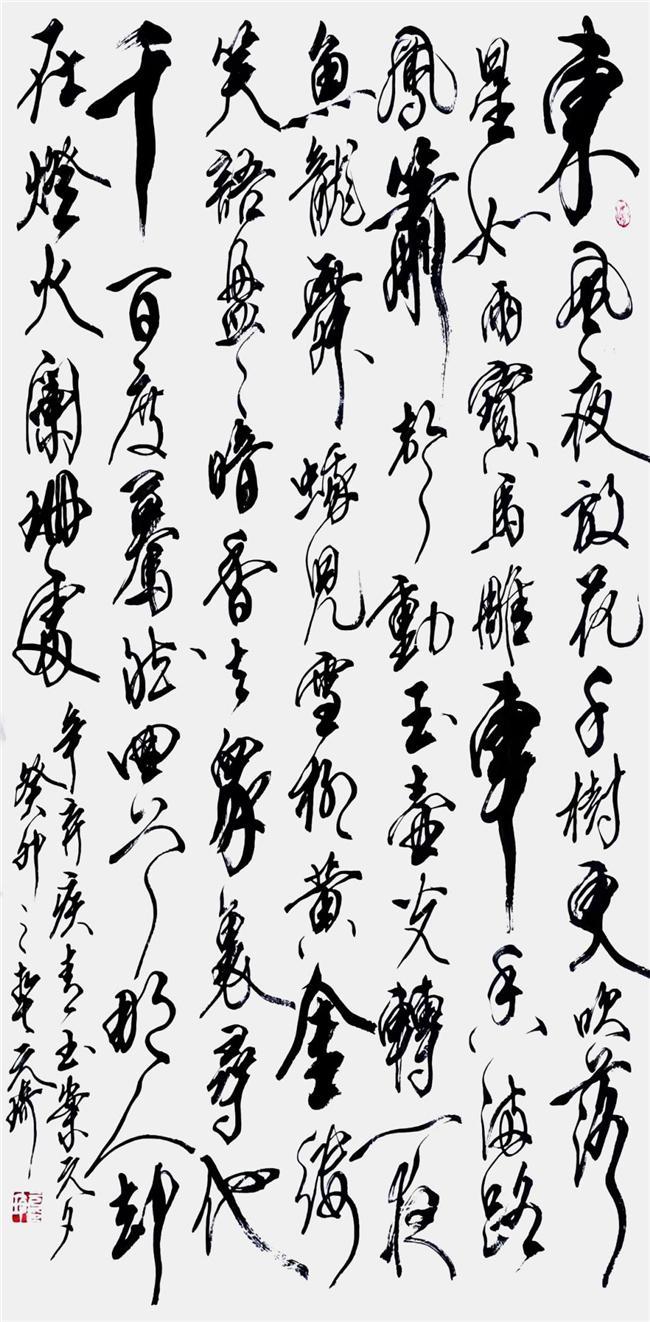 東風夜放花千樹更吹落
星如雨寶馬雕車香滿路
鳳簫聲動玉壺光轉一夜
魚龍舞蛾兒雪柳黃金縷
笑語盈〻暗香去眾裏尋他
千百度驀然回首那人却
在燈火闌珊處
辛弃疾青玉案元夕
癸卯之